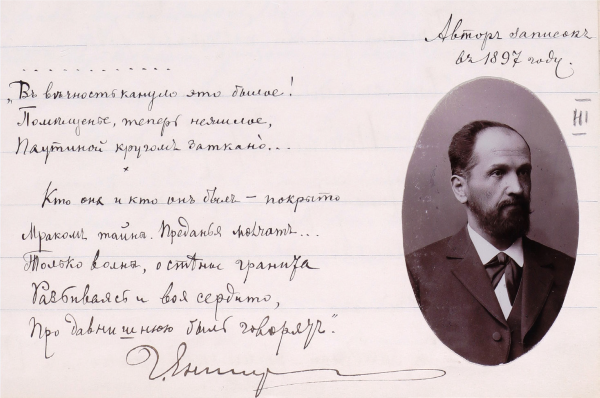 Авторъ записокъ
въ 1897 году.
. . . . . . . . . . . . .
„Въ вѣчность кануло это былое!
Помѣщенье, теперь нежилое,
Паутиной кругомъ заткано...
*
Кто она и кто онъ былъ – покрыто
Мракомъ тайны. Преданья молчатъ...
Только волны, о стѣны гранита
Разбиваясь и воя сердито,
Про давнишнюю быль говорятъ".